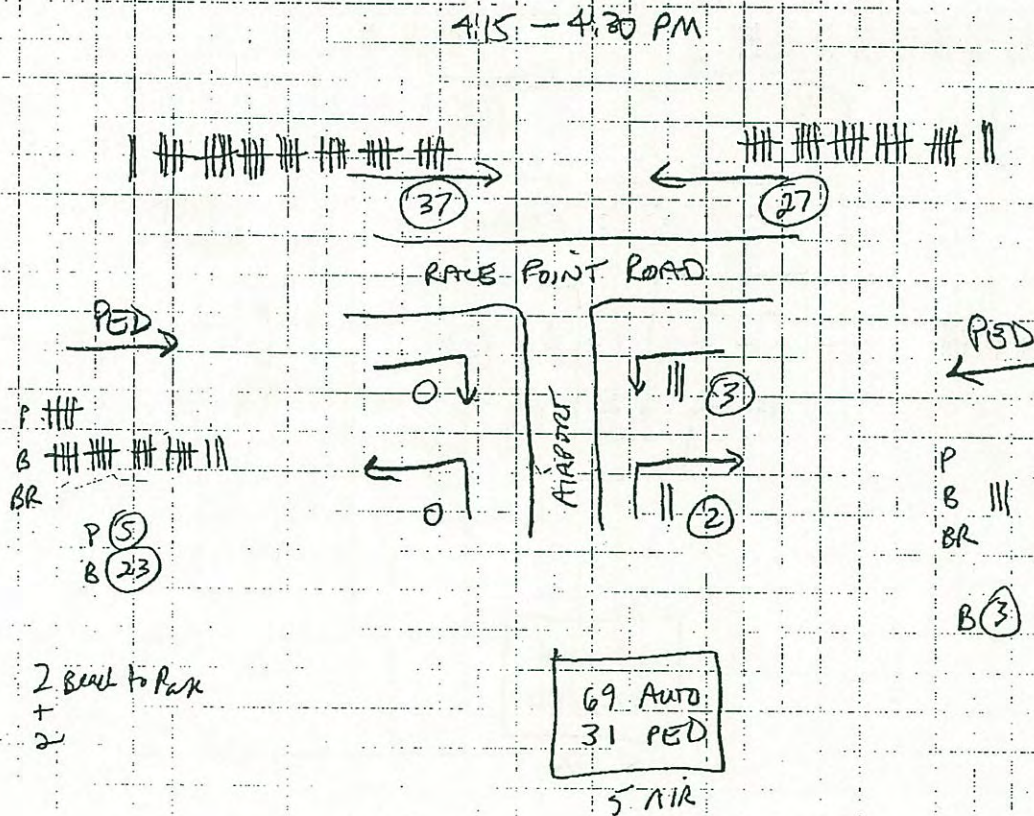 4:15 — 4:30 PM
37
27
RACE POINT ROAD
PED
PED
0
3
AIRPORT
0
2
P
B
BR
P 5
B 23
P
B
BR
B 3
2 Beach to
+
2
69 AUTO
31 PED
5 AIR